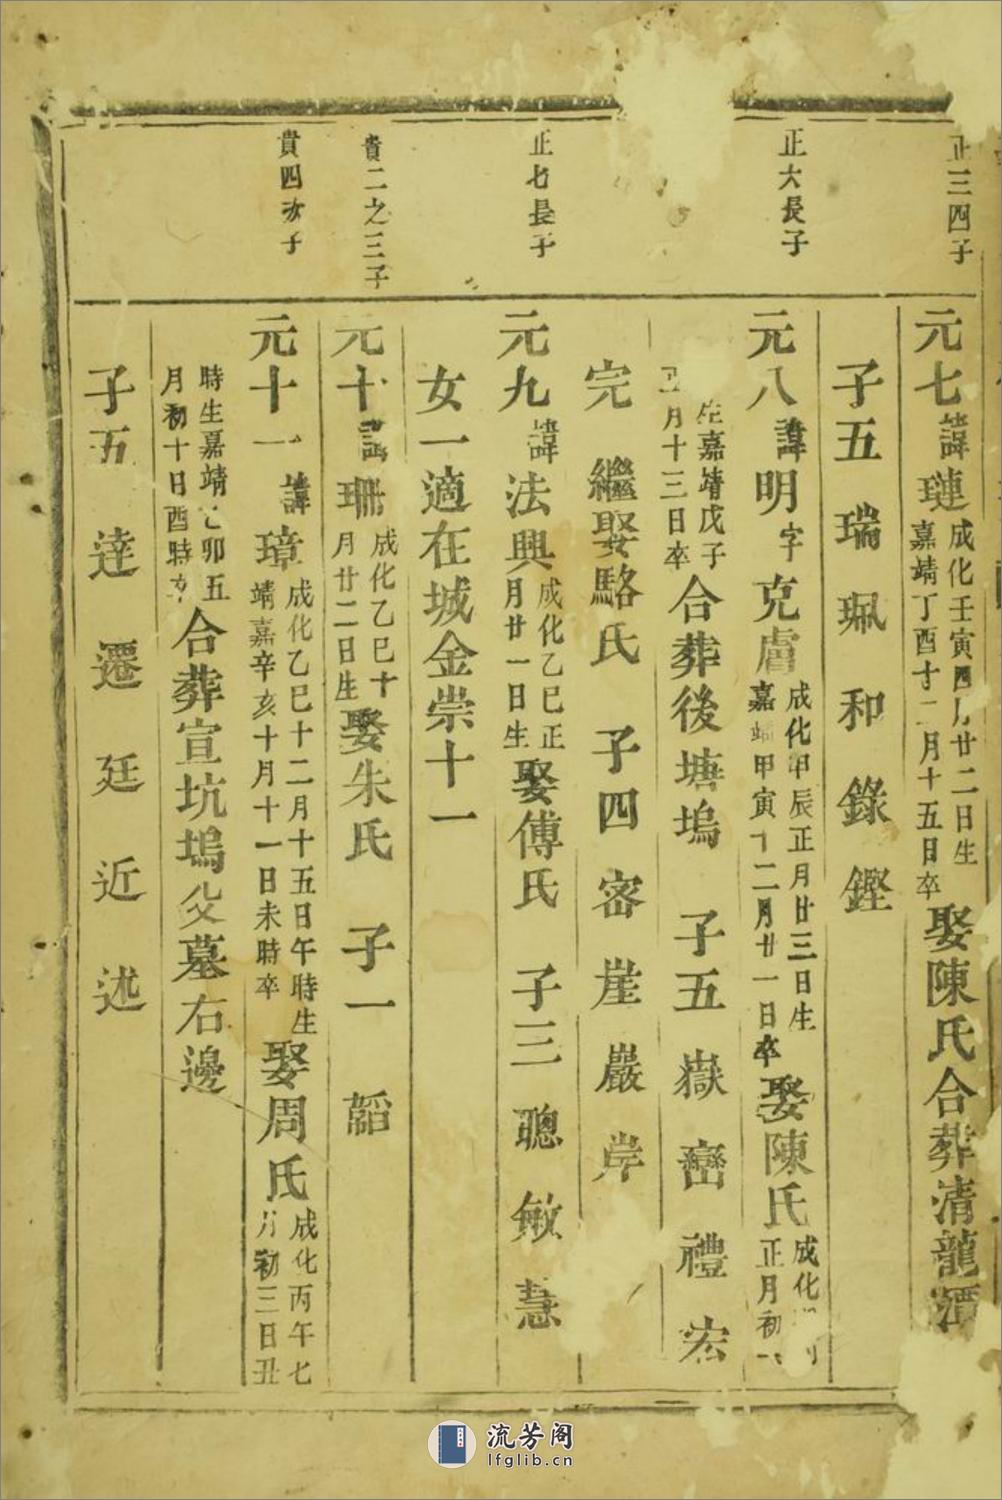 正三四子
元七諱璉成化壬寅四月廿二日生嘉靖丁酉十二月十五日卒娶陳氏合葬清龍
子五 瑞 珮 和 錄 鏗
正六長子
元八諱明字克膚成化甲辰正月廿三日生嘉靖甲寅十二月廿一日卒娶陳氏成化正月初
生嘉靖戊子正月十三日卒合葬後塘塢 子五 嶽 巒 禮 宏
完 繼娶駱氏 子四 密 崖 嚴 岸
正七長子
元九諱法興成化乙巳正月廿一日生娶傅氏 子三 聰 敏 慧
女一適在城金崇十一
貴二之三子
元十諱珊成化乙巳十月廿二日生娶朱氏 子一 韜
貴四次子
元十一諱璋成化乙巳十二月十五日午時生靖嘉辛亥十月十一日未時卒娶周氏成化丙午七月初三日丑
時生嘉靖乙卯五月初十日酉時卒合葬宣坑塢父墓右邊
子五 達 遷 廷 近 述
流芳阁
lfglib.cn